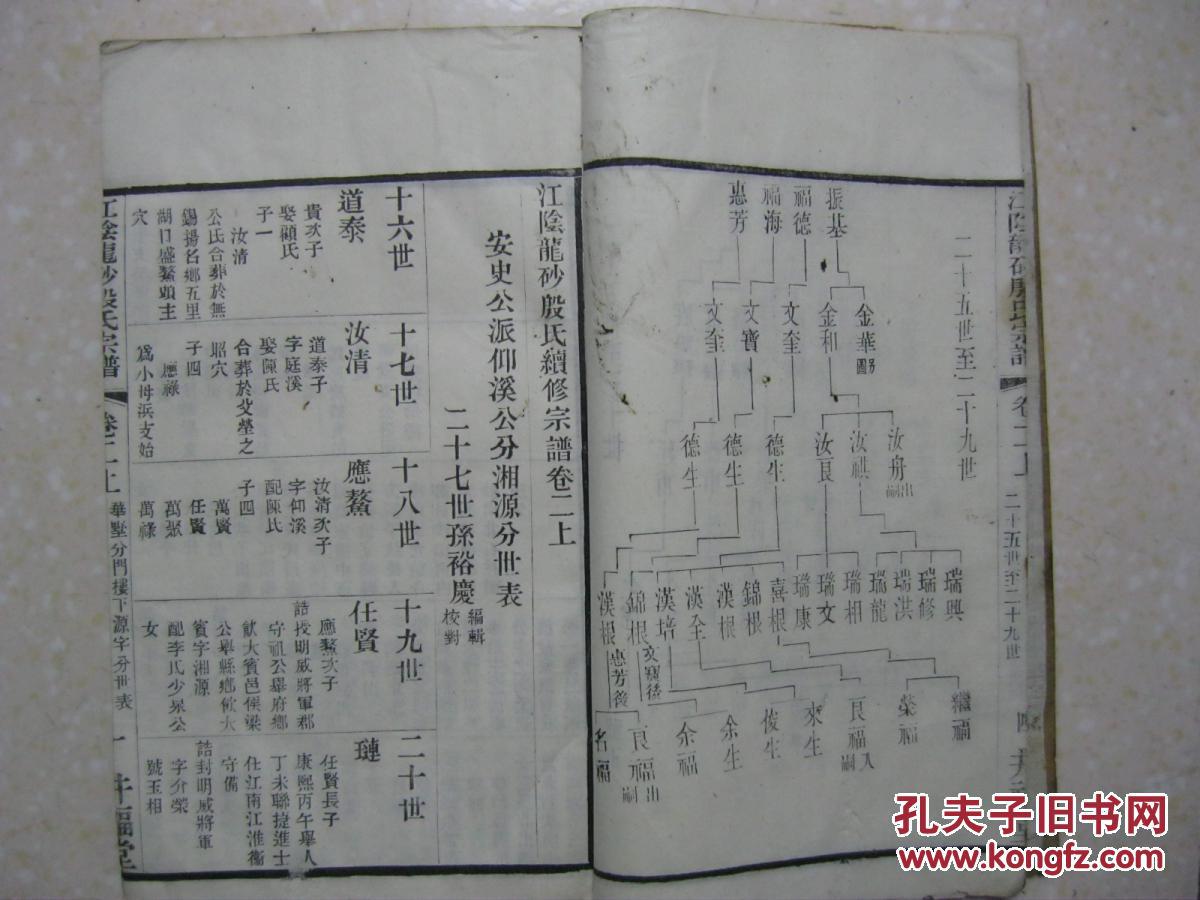 江陰龍砂殷氏宗譜
卷二上
二十五世至二十九世
二十五世至二十九世
振基
福德
福海
惠芳
金華 另圖
金和
文奎
文寶
文奎
汝舟 出嗣
汝祺
汝良
德生
德生
德生
瑞興
瑞修
瑞洪
瑞龍
瑞相
瑞文
瑞康
喜根
錦根
漢根
漢全
漢培
錦根
漢根
文寶後
惠芳後
繼福
榮福
良福 入嗣
來生
俊生
余生
余福
良福 出嗣
名福
江陰龍砂殷氏續修宗譜卷二上
安史公派仰溪公分湘源分世表
二十七世孫裕慶 編輯 校對
十六世
道泰
貴次子
娶顧氏
子一
汝清
公氏合葬於無
錫揚名鄉五里
湖口盛鰲頭主
穴
十七世
汝清
道泰子
字庭溪
娶陳氏
合葬於父塋之
昭穴
子四
應祿
爲小拇浜支始
十八世
應鰲
汝清次子
字仰溪
配陳氏
子四
萬賢
任賢
萬聚
萬祿
十九世
任賢
應鰲次子
誥授明威將軍郡
守祖公舉府鄉
飲大賓邑侯梁
公舉縣鄉飲大
賓字湘源
配李氏少泉公
女
二十世
璉
任賢長子
康熙丙午舉人
丁未聯捷進士
仕江南江淮衛
守備
誥封明威將軍
字介榮
號玉相
江陰龍砂殷氏宗譜
卷二上
華墅分門樓下源字分世表
一
孔夫子旧书网
www.kongfz.com